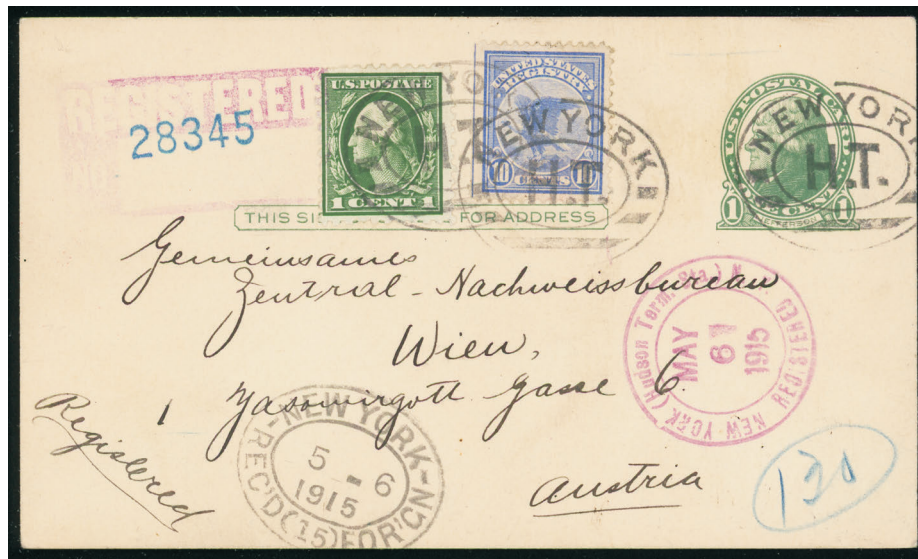 REGISTERED
28345
U.S. POSTAGE
1 CENT 1
UNITED STATES
REGISTRY
10 CENTS 10
NEW YORK
H.T.
NEW YORK
H.T.
U.S. POSTAL CARD
1 ONE CENT 1
JEFFERSON
THIS SI FOR ADDRESS
Gemeinsames
Zentral-Nachweissbureau
Wien,
1 Jasomirgott Gasse 6.
Austria
Registered
NEW YORK (Hudson Term. Sta.) N.Y. REGISTERED
MAY
6
1915
NEW YORK
5-6
1915
REC'D (15) FOR'GN
130